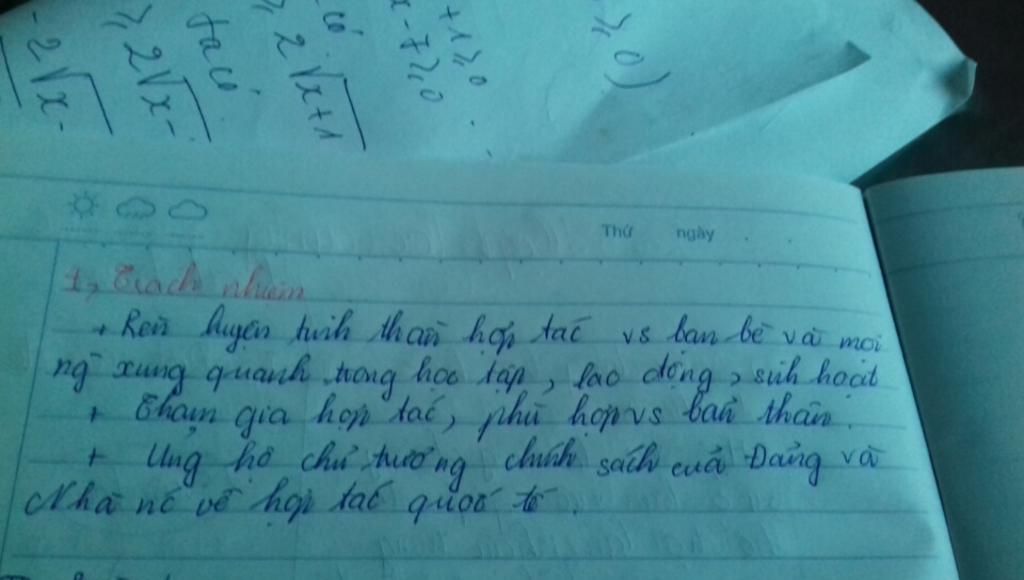 ≥ 0)
+1 ≥ 0
x - 7 ≥ 0
có
≥ 2√x+1
ta có
≥ 2√x-
- 2√x-
Thứ ngày
1, Trách nhiệm
+ Rèn luyện tinh thần hợp tác vs bạn bè và mọi
ng xung quanh trong học tập, lao động, sinh hoạt
+ Tham gia hợp tác, phù hợp vs bản thân.
+ Ủng hộ chủ trương chính sách của Đảng và
Nhà nc về hợp tác quốc tế.